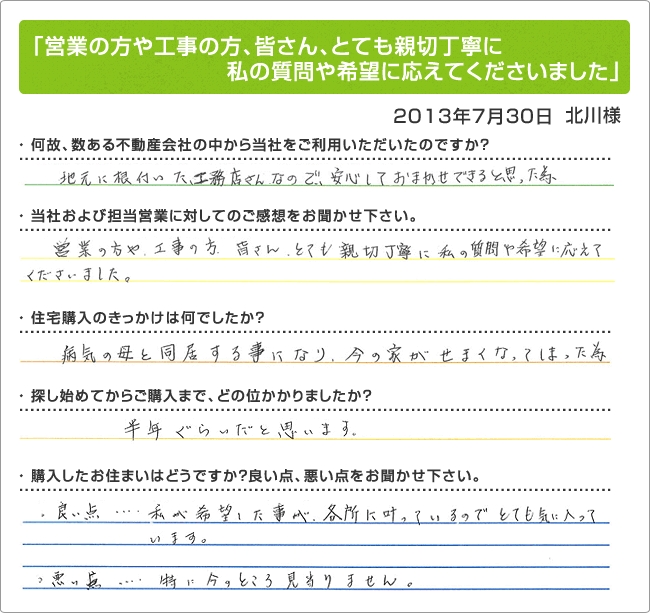 「営業の方や工事の方、皆さん、とても親切丁寧に
私の質問や希望に応えてくださいました」
2013年7月30日 北川様
・何故、数ある不動産会社の中から当社をご利用いただいたのですか?
地元に根付いた、工務店さんなので、安心しておまかせできると思った為
・当社および担当営業に対してのご感想をお聞かせ下さい。
営業の方や、工事の方、皆さん、とても親切丁寧に私の質問や希望に応えて
くださいました。
・住宅購入のきっかけは何でしたか?
病気の母と同居する事になり、今の家がせまくなってしまった為
・探し始めてからご購入まで、どの位かかりましたか?
半年ぐらいだと思います。
・購入したお住まいはどうですか?良い点、悪い点をお聞かせ下さい。
・良い点 ‥‥ 私が希望した事が、各所に叶っているのでとても気に入って
います。
・悪い点 ‥‥ 特に今のところ見当りません。